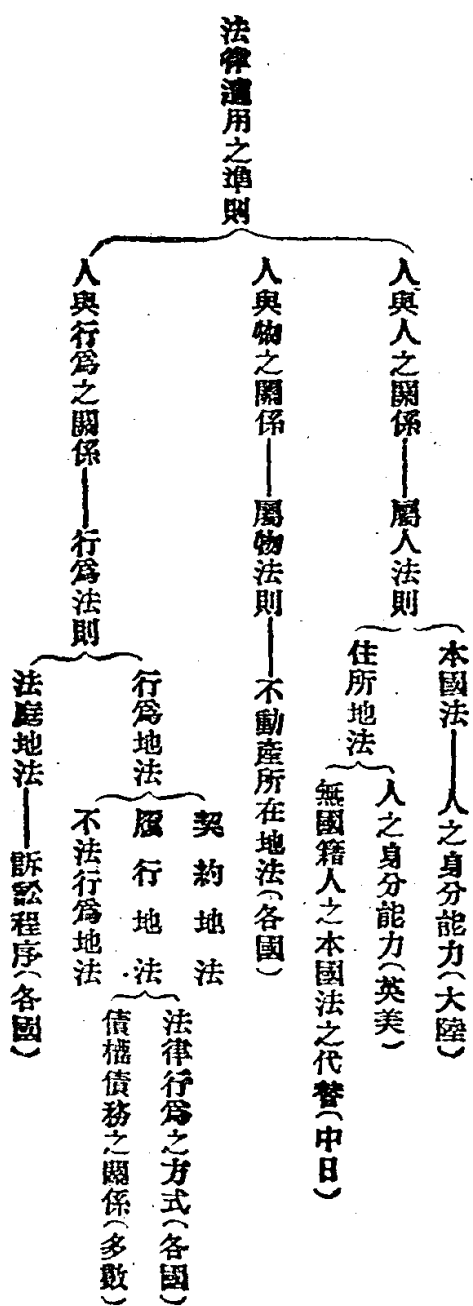 法律適用之準則
人與人之關係——屬人法則
本國法——人之身分能力(大陸)
住所地法
人之身分能力(英美)
無國籍人之本國法之代替(中日)
人與物之關係——屬物法則——不動產所在地法(各國)
人與行爲之關係——行爲法則
行爲地法
契約地法
履行地法
不法行爲地法
法律行爲之方式(各國)
債權債務之關係(多數)
法庭地法——訴訟程序(各國)